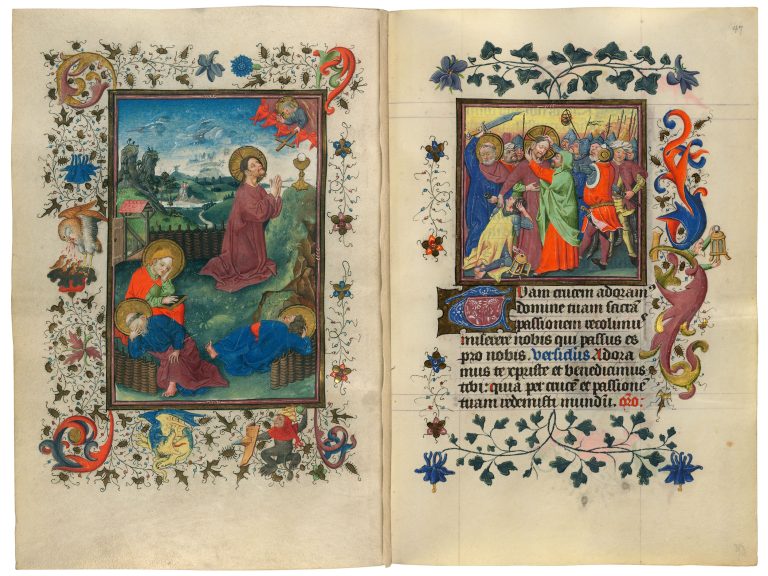 47
Tuam crucem adoramꝰ
domine tuam sacrā
passionem recolimuꝰ
miserere nobis qui passus es
pro nobis. Versiclus Adora
mus te xpriste et benedicimus
tibi: quia per crucē et passionē
tuam redemisti mundū. oro.